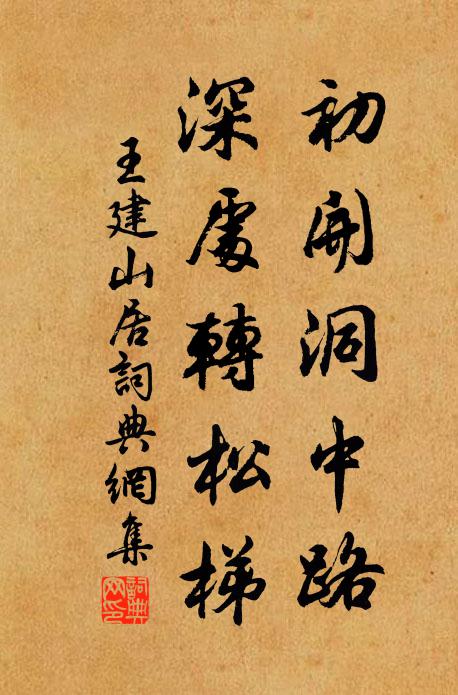 初開洞中路
深處轉松梯
王建山居詞典網集
詞典网印